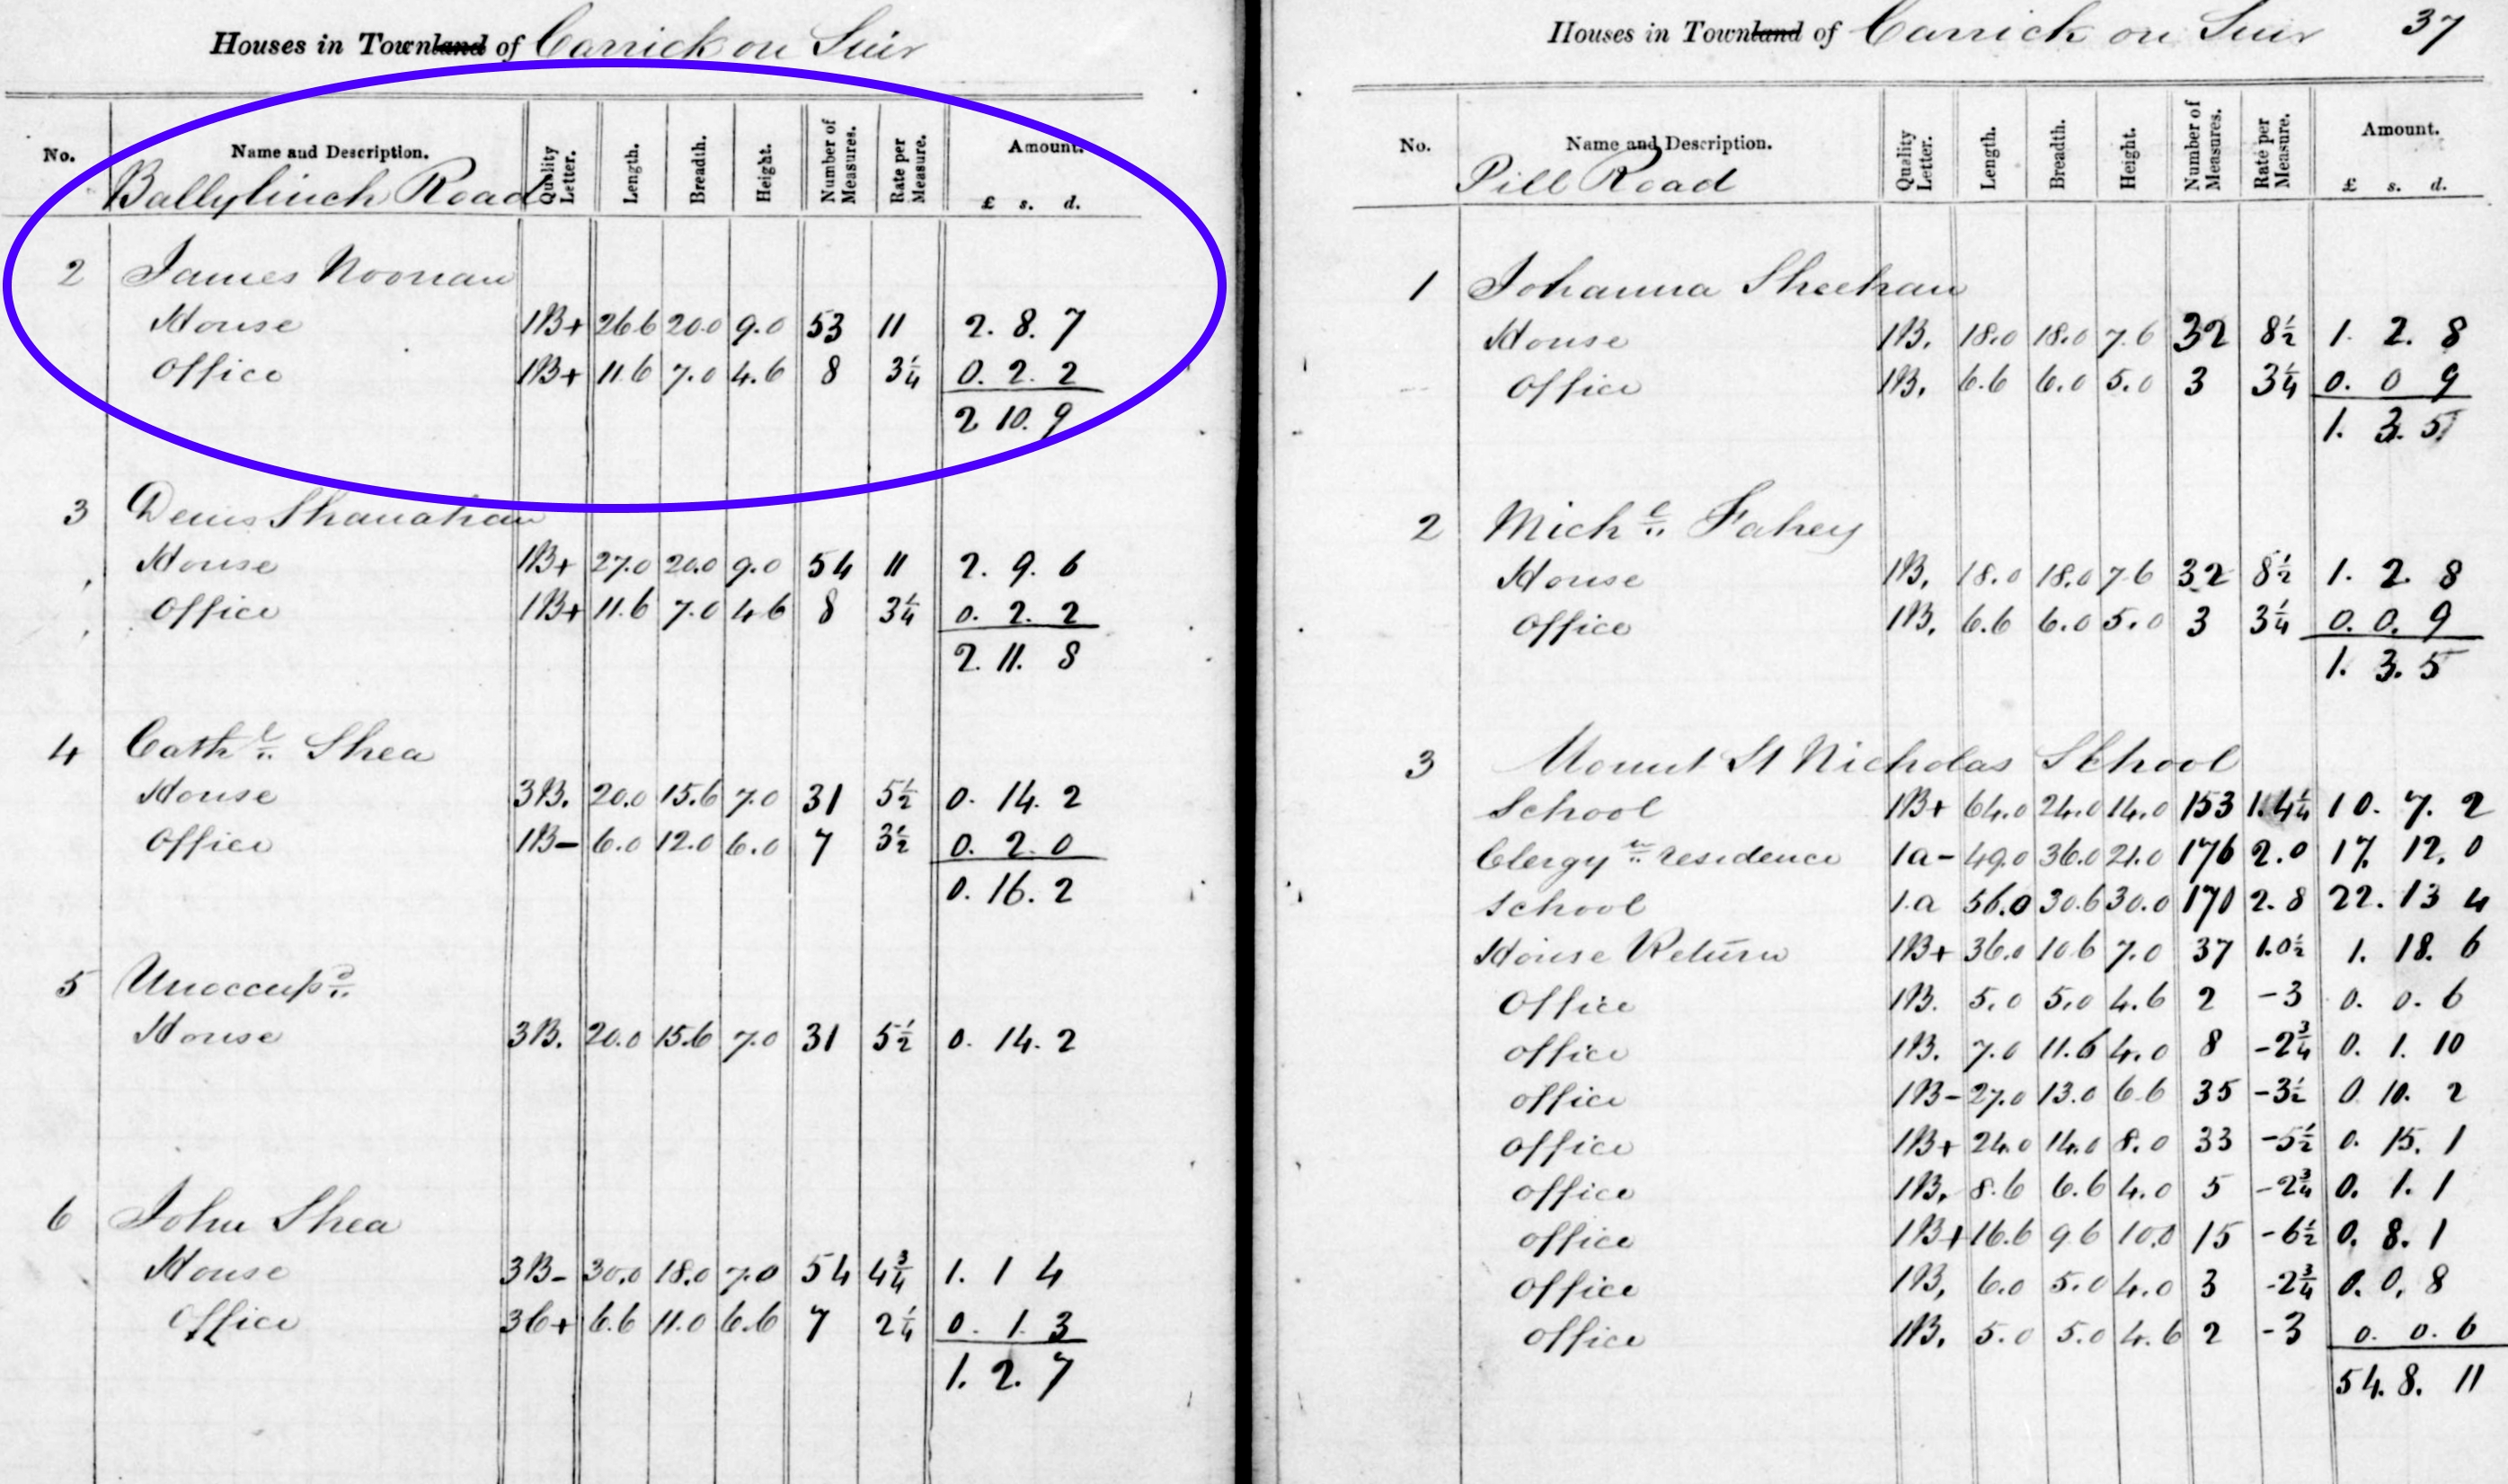 Houses in Townland of Carrick on Suir
No. Name and Description. Quality Letter. Length. Breadth. Height. Number of Measures. Rate per Measure. Amount. £ s. d.
Ballylinch Road
2 James Noonan
House 1B+ 26.6 20.0 9.0 53 11 2. 8. 7
Office 1B+ 11.6 7.0 4.6 8 3¼ 0. 2. 2
2 10. 9
3 Denis Shanahan
House 1B+ 27.0 20.0 9.0 54 11 2. 9. 6
Office 1B+ 11.6 7.0 4.6 8 3¼ 0. 2. 2
2. 11. 8
4 Cathe Shea
House 3B. 20.0 15.6 7.0 31 5½ 0. 14. 2
Office 1B- 6.0 12.0 6.0 7 3½ 0. 2. 0
0. 16. 2
5 Unoccupd
House 3B. 20.0 15.6 7.0 31 5½ 0. 14. 2
6 John Shea
House 3B- 30.0 18.0 7.0 54 4¾ 1. 1 4
Office 3C+ 6.6 11.0 6.6 7 2¼ 0. 1. 3
1. 2. 7
Houses in Townland of Carrick on Suir 37
No. Name and Description. Quality Letter. Length. Breadth. Height. Number of Measures. Rate per Measure. Amount. £ s. d.
Pill Road
1 Johanna Sheehan
House 1B. 18.0 18.0 7.6 32 8½ 1. 2. 8
Office 1B. 6.6 6.0 5.0 3 3¼ 0. 0 9
1. 3. 5
2 Michl Fahey
House 1B. 18.0 18.0 7.6 32 8½ 1. 2. 8
Office 1B. 6.6 6.0 5.0 3 3¼ 0. 0. 9
1. 3. 5
3 Mount St Nicholas School
School 1B+ 64.0 24.0 14.0 153 1.4¼ 10. 7. 2
Clergyms residence 1a- 49.0 36.0 21.0 176 2.0 17. 12. 0
School 1.a 56.0 30.6 30.0 170 2. 8 22. 13 4
House Return 1B+ 36.0 10.6 7.0 37 1.0½ 1. 18. 6
Office 1B. 5.0 5.0 4.6 2 -3 0. 0. 6
office 1B. 7.0 11.6 4.0 8 -2¾ 0. 1. 10
office 1B- 27.0 13.0 6.6 35 -3½ 0 10. 2
Office 1B+ 24.0 14.0 8.0 33 -5½ 0. 15. 1
office 1B. 8.6 6.6 4.0 5 -2¾ 0. 1. 1
office 1B+ 16.6 9.6 10.0 15 -6½ 0. 8. 1
Office 1B. 6.0 5.0 4.0 3 -2¾ 0. 0. 8
office 1B. 5.0 5.0 4.6 2 -3 0. 0. 6
54. 8. 11